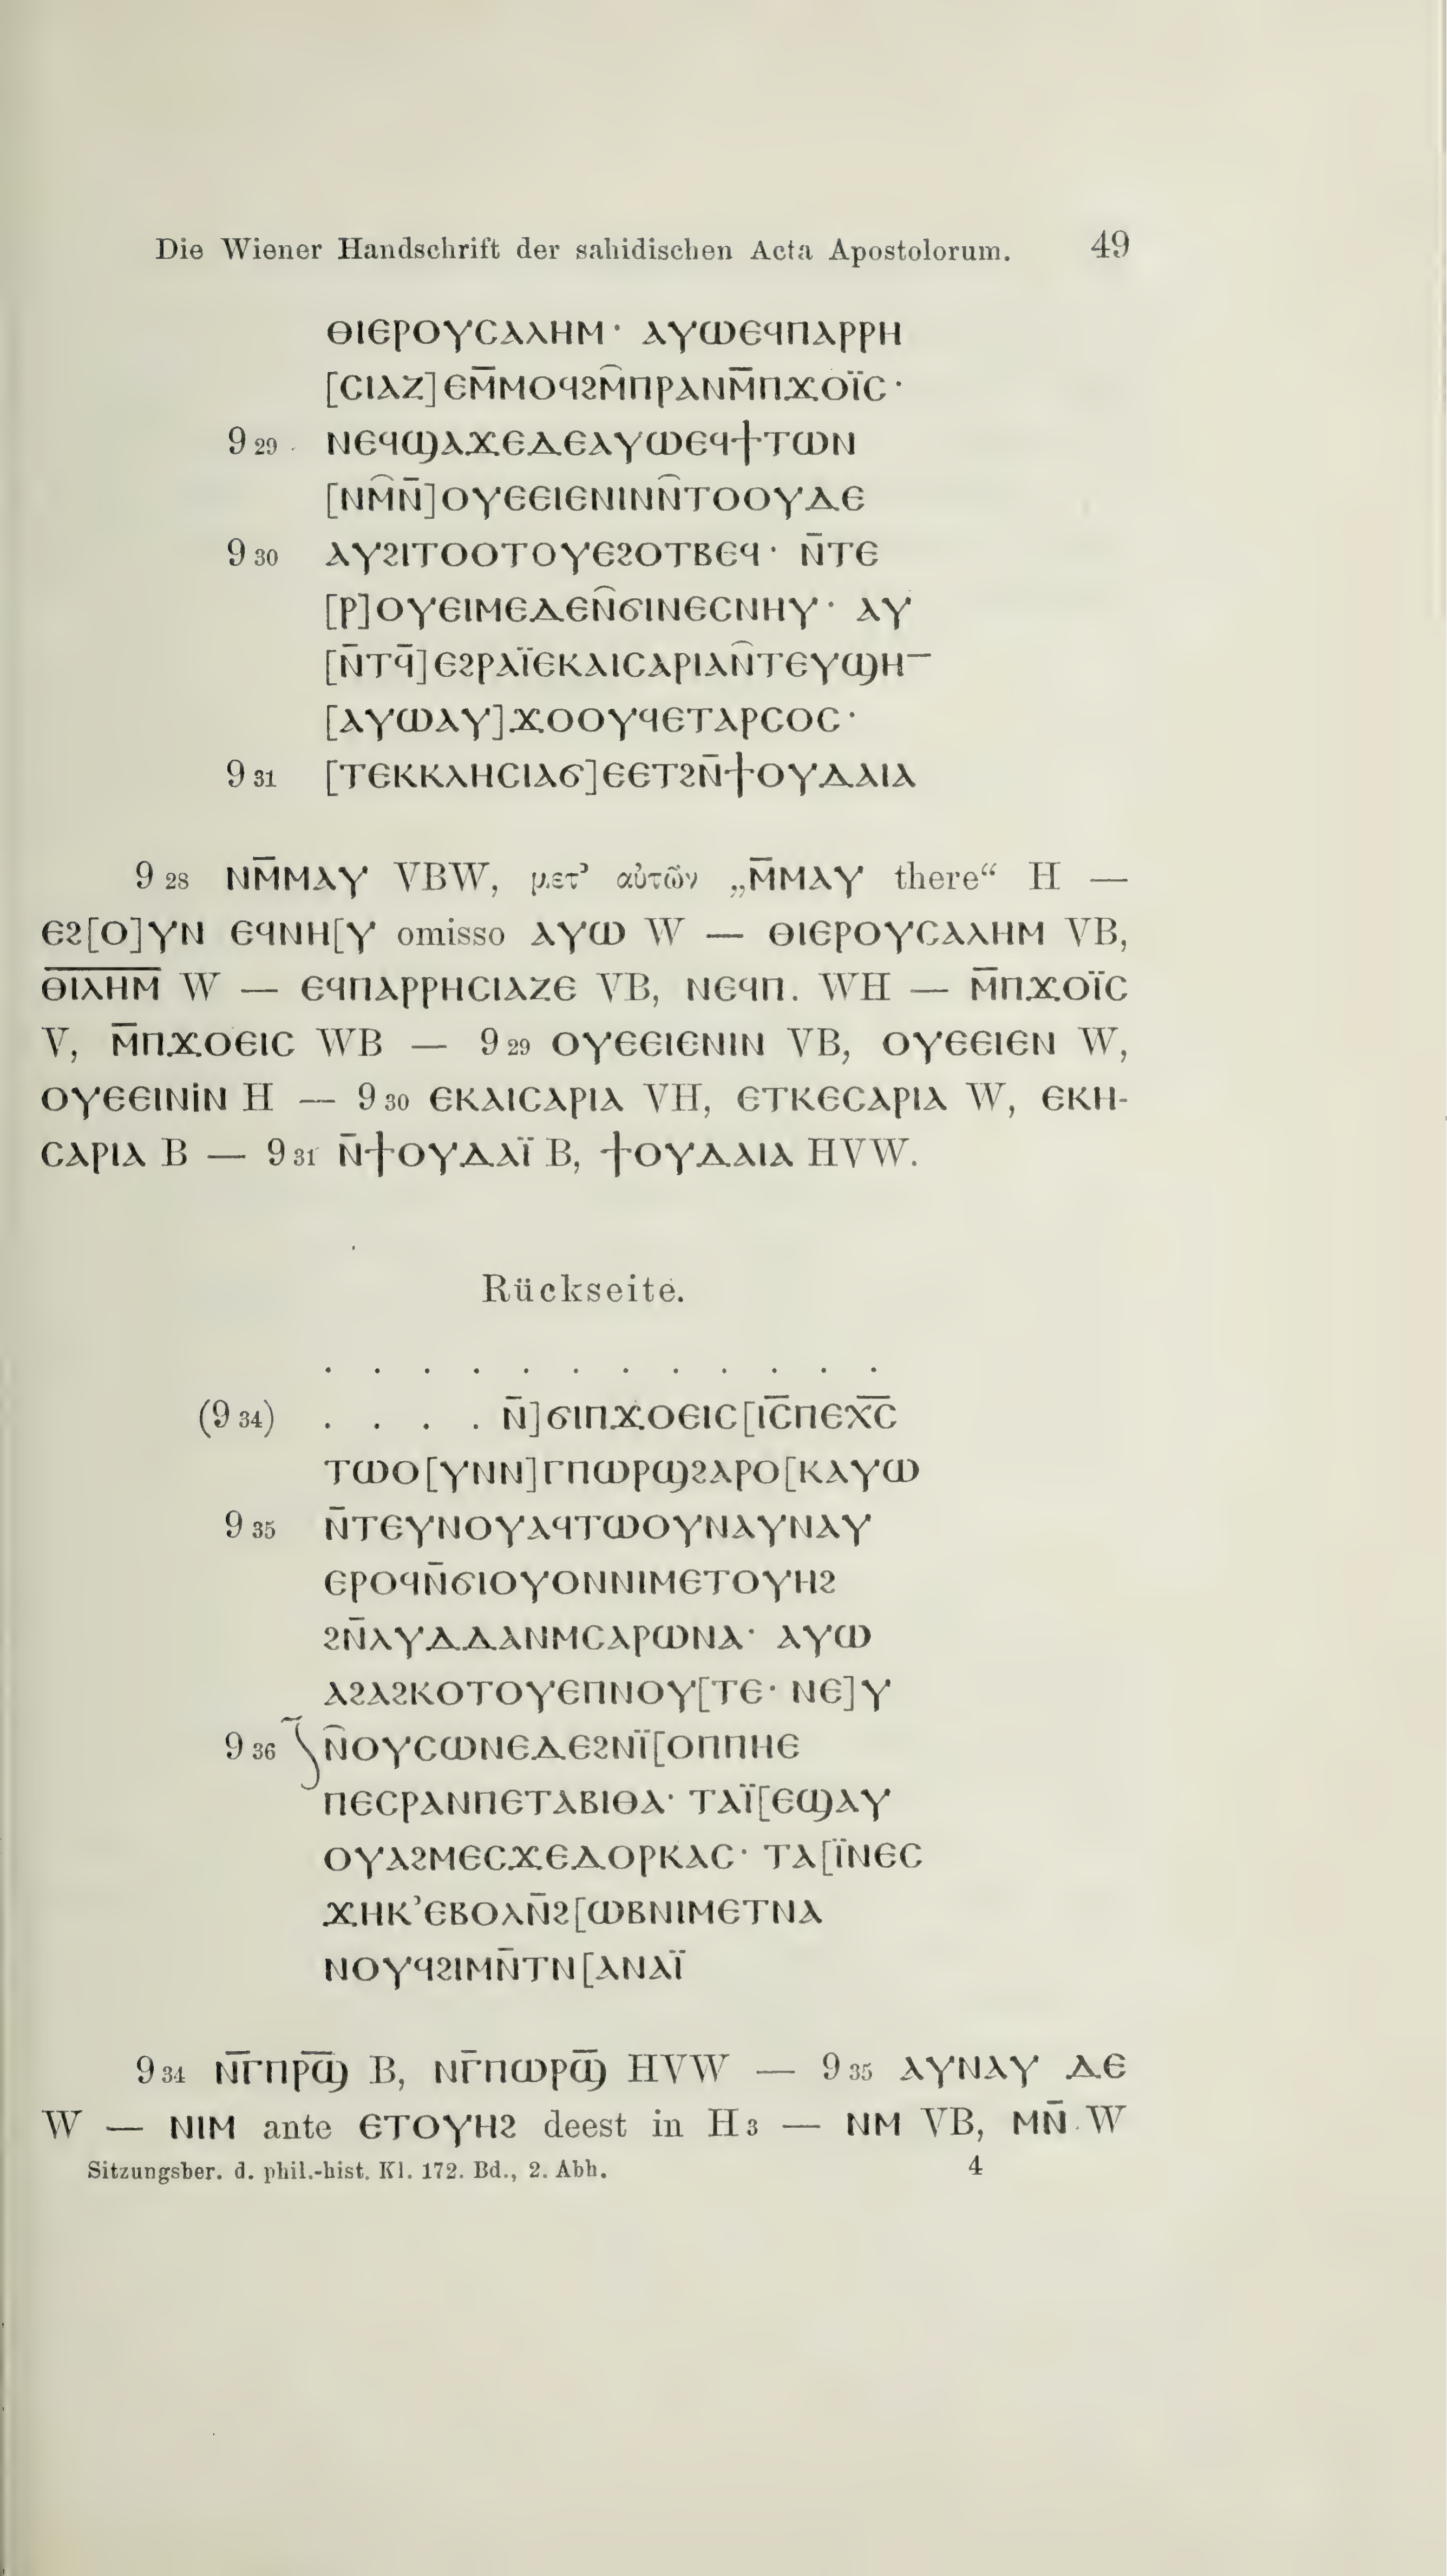 Die Wiener Handschrift der sahidischen Acta Apostolorum. 49
ⲑⲓⲉⲣⲟⲩⲥⲁⲗⲏⲙ· ⲁⲩⲱⲉϥⲡⲁⲣⲣⲏ
[ⲥⲓⲁⲍ]ⲉⲙ̄ⲙⲟϥϩⲙ̂ⲡⲣⲁⲛⲙ̄ⲡϫⲟⲓ̈ⲥ·
9 29 ⲛⲉϥϣⲁϫⲉⲇⲉⲁⲩⲱⲉϥϯⲧⲱⲛ
[ⲛⲙ̂ⲛ̄]ⲟⲩⲉⲉⲓⲉⲛⲓⲛⲛ̂ⲧⲟⲟⲩⲇⲉ
9 30 ⲁⲩϩⲓⲧⲟⲟⲧⲟⲩⲉϩⲟⲧⲃⲉϥ· ⲛ̄ⲧⲉ
[ⲣ]ⲟⲩⲉⲓⲙⲉⲇⲉⲛ̂ϭⲓⲛⲉⲥⲛⲏⲩ· ⲁⲩ
[ⲛ̄ⲧϥ̄]ⲉϩⲣⲁⲓ̈ⲉⲕⲁⲓⲥⲁⲣⲓⲁⲛ̂ⲧⲉⲩϣⲏ‾
[ⲁⲩⲱⲁⲩ]ϫⲟⲟⲩϥⲉⲧⲁⲣⲥⲟⲥ·
9 31 [ⲧⲉⲕⲕⲗⲏⲥⲓⲁϭ]ⲉⲉⲧϩⲛ̄ϯⲟⲩⲇⲁⲓⲁ
9 28 ⲛⲙ̄ⲙⲁⲩ VBW, μετ’ αὐτῶν „ⲙ̄ⲙⲁⲩ there“ H —
ⲉϩ[ⲟ]ⲩⲛ ⲉϥⲛⲏ[ⲩ omisso ⲁⲩⲱ W — ⲑⲓⲉⲣⲟⲩⲥⲁⲗⲏⲙ VB,
ⲑ̅ⲓ̅ⲗ̅ⲏ̅ⲙ̅ W — ⲉϥⲡⲁⲣⲣⲏⲥⲓⲁⲍⲉ VB, ⲛⲉϥⲡ. WH — ⲙ̄ⲡϫⲟⲓ̈ⲥ
V, ⲙ̄ⲡϫⲟⲉⲓⲥ WB — 9 29 ⲟⲩⲉⲉⲓⲉⲛⲓⲛ VB, ⲟⲩⲉⲉⲓⲉⲛ W,
ⲟⲩⲉⲉⲓⲛⲓ̇ⲛ H — 9 30 ⲉⲕⲁⲓⲥⲁⲣⲓⲁ VH, ⲉⲧⲕⲉⲥⲁⲣⲓⲁ W, ⲉⲕⲏ-
ⲥⲁⲣⲓⲁ B — 9 31 ⲛ̄ϯⲟⲩⲇⲁⲓ̈ B, ϯⲟⲩⲇⲁⲓⲁ HVW.
Rückseite.
. . . . . . . . . . . .
(9 34) . . . . ⲛ̄]ϭⲓⲡϫⲟⲉⲓⲥ[ⲓⲥ̅ⲡⲉⲭ̅ⲥ̅
ⲧⲱⲟ[ⲩⲛⲛ]ⲅⲡⲱⲣϣϩⲁⲣⲟ[ⲕⲁⲩⲱ
9 35 ⲛ̄ⲧⲉⲩⲛⲟⲩⲁϥⲧⲱⲟⲩⲛⲁⲩⲛⲁⲩ
ⲉⲣⲟϥⲛ̄ϭⲓⲟⲩⲟⲛⲛⲓⲙⲉⲧⲟⲩⲏϩ
ϩⲛ̄ⲗⲩⲇⲇⲁⲛⲙⲥⲁⲣⲱⲛⲁ· ⲁⲩⲱ
ⲁϩⲁϩⲕⲟⲧⲟⲩⲉⲡⲛⲟⲩ[ⲧⲉ· ⲛⲉ]ⲩ
9 36 ⲛ̂ⲟⲩⲥⲱⲛⲉⲇⲉϩⲛⲓ̈[ⲟⲡⲡⲏⲉ
ⲡⲉⲥⲣⲁⲛⲡⲉⲧⲁⲃⲓⲑⲁ· ⲧⲁⲓ̈[ⲉϣⲁⲩ
ⲟⲩⲁϩⲙⲉⲥϫⲉⲇⲟⲣⲕⲁⲥ· ⲧⲁ[ⲓ̈ⲛⲉⲥ
ϫⲏⲕ’ⲉⲃⲟⲗⲛ̄ϩ[ⲱⲃⲛⲓⲙⲉⲧⲛⲁ
ⲛⲟⲩϥϩⲓⲙⲛ̄ⲧⲛ[ⲁⲛⲁⲓ̈
9 34 ⲛ̅ⲅ̅ⲡⲣ̅ϣ̅ B, ⲛⲅ̄ⲡⲱⲣϣ̄ HVW — 9 35 ⲁⲩⲛⲁⲩ ⲇⲉ
W — ⲛⲓⲙ ante ⲉⲧⲟⲩⲏϩ deest in H 3 — ⲛⲙ VB, ⲙⲛ̄ W
Sitzungsber. d. phil.-hist. Kl. 172. Bd., 2. Abh. 4